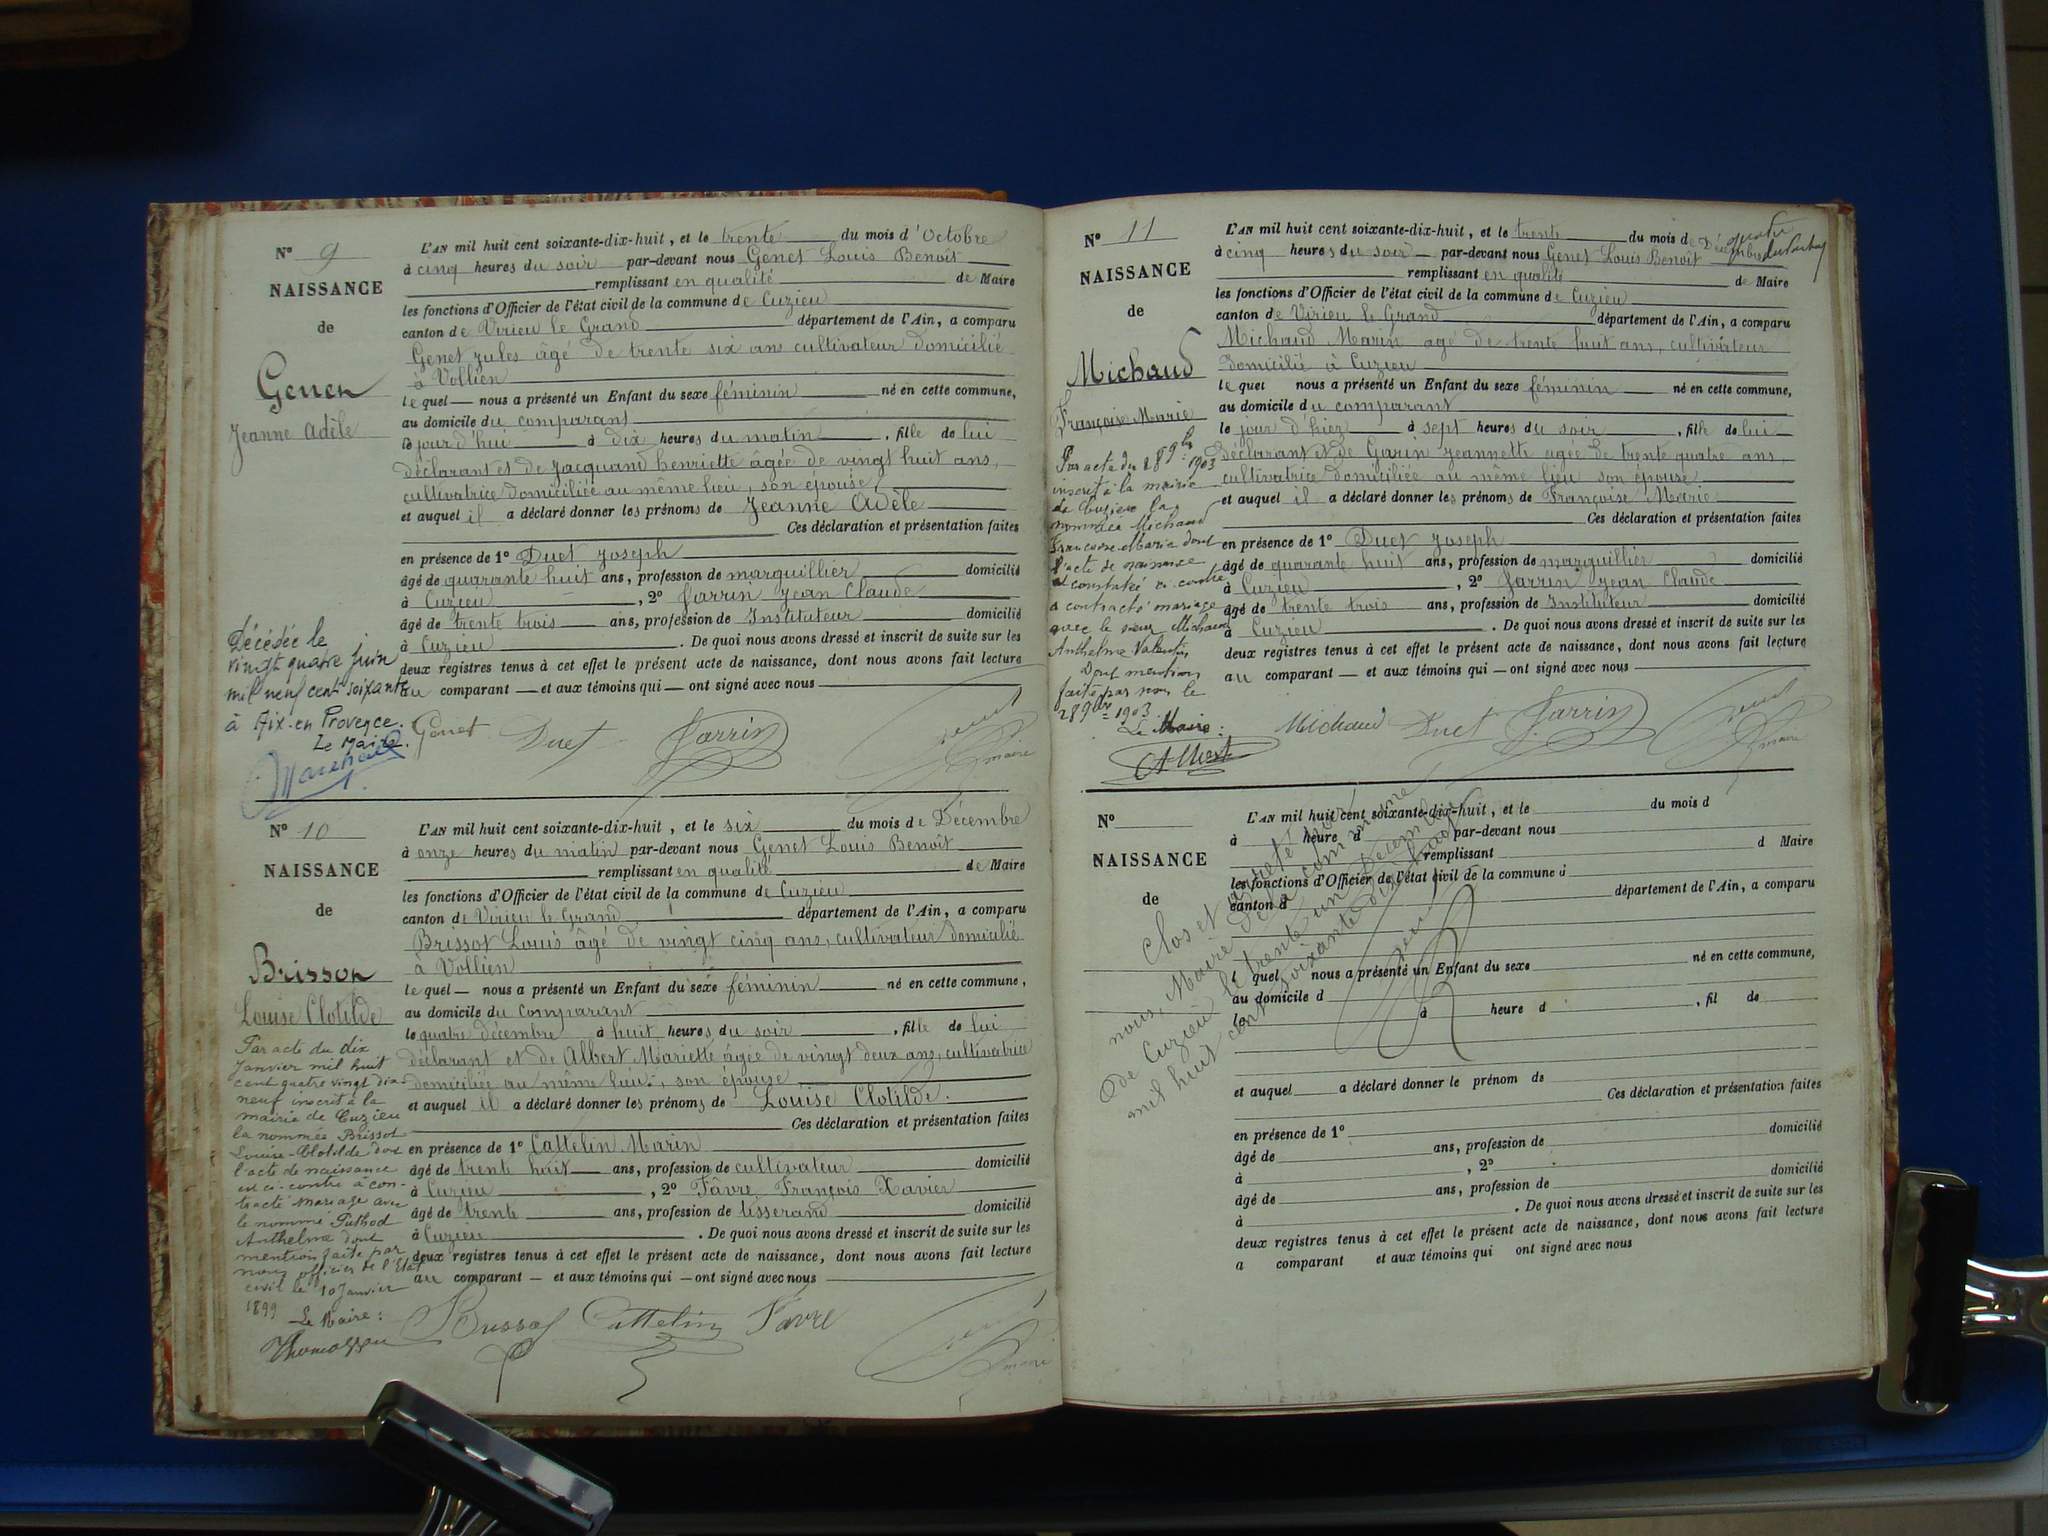 N° 9
NAISSANCE
de
Genet
Jeanne Adèle
L'AN mil huit cent soixante-dix-huit, et le trente du mois d'Octobre
à cinq heures du soir par-devant nous Genet Louis Benoit
remplissant en qualité de Maire
les fonctions d'Officier de l'état civil de la commune de Cuzieu
canton de Virieu le Grand département de l'Ain, a comparu
Genet Jules âgé de trente six ans cultivateur domicilié
à Vollien
le quel — nous a présenté un Enfant du sexe féminin né en cette commune,
au domicile du comparant
le jourd'hui à dix heures du matin, fille de lui
déclarant et de Jacquand henriette âgée de vingt huit ans,
cultivatrice domiciliée au même lieu, son épouse
et auquel il a déclaré donner les prénoms de Jeanne Adèle
Ces déclaration et présentation faites
en présence de 1° Duet Joseph
âgé de quarante huit ans, profession de marguillier domicilié
à Cuzieu, 2° Jarrin Jean Claude
âgé de trente trois ans, profession de Instituteur domicilié
à Cuzieu. De quoi nous avons dressé et inscrit de suite sur les
deux registres tenus à cet effet le présent acte de naissance, dont nous avons fait lecture
au comparant — et aux témoins qui — ont signé avec nous
Décédée le
vingt quatre juin
mil neuf cent soixante
à Aix-en Provence.
Le Maire.
Genet Duet Jarrin Genet
maire
N° 10
NAISSANCE
de
Brissot
Louise Clotilde
L'AN mil huit cent soixante-dix-huit, et le six du mois de Décembre
à onze heures du matin par-devant nous Genet Louis Benoît
remplissant en qualité de Maire
les fonctions d'Officier de l'état civil de la commune de Cuzieu
canton de Virieu le Grand département de l'Ain, a comparu
Brissot Louis âgé de vingt cinq ans, cultivateur domicilié
à Vollien
le quel — nous a présenté un Enfant du sexe féminin né en cette commune,
au domicile du comparant
le quatre décembre à huit heures du soir, fille de lui
déclarant et de Albert Mariette âgée de vingt deux ans, cultivatrice
domiciliée au même lieu, son épouse
et auquel il a déclaré donner les prénoms de Louise Clotilde.
Ces déclaration et présentation faites
en présence de 1° Cattelin Marin
âgé de trente huit ans, profession de cultivateur domicilié
à Cuzieu, 2° Fâvre François Xavier
âgé de trente ans, profession de tisserand domicilié
à Cuzieu. De quoi nous avons dressé et inscrit de suite sur les
deux registres tenus à cet effet le présent acte de naissance, dont nous avons fait lecture
au comparant — et aux témoins qui — ont signé avec nous
Par acte du dix
Janvier mil huit
cent quatre vingt dix
neuf inscrit à la
mairie de Cuzieu
la nommée Brissot
Louise-Clotilde dont
l'acte de naissance
est ci-contre a con-
tracté mariage avec
le nommé Puthod
Anthelme dont
mention faite par
nous officier de l'État
civil le 10 Janvier
1899 Le Maire:
Brissot Cattelin Favre Genet
maire
N° 11
NAISSANCE
de
Michaud
Françoise Marie
L'AN mil huit cent soixante-dix-huit, et le trente du mois de Décembre
à cinq heures du soir — par-devant nous Genet Louis Benoit
remplissant en qualité de Maire
les fonctions d'Officier de l'état civil de la commune de Cuzieu
canton de Virieu le Grand département de l'Ain, a comparu
Michaud Marin âgé de trente huit ans, cultivateur
domicilié à Cuzieu
le quel nous a présenté un Enfant du sexe féminin né en cette commune,
au domicile du comparant
le jour d'hier à sept heures du soir, fille de lui
déclarant et de Garin Jeannette agée de trente quatre ans,
cultivatrice domiciliée au même lieu son épouse
et auquel il a déclaré donner les prénoms de Françoise Marie
Ces déclaration et présentation faites
en présence de 1° Duet Joseph
âgé de quarante huit ans, profession de marguillier domicilié
à Cuzieu, 2° Jarrin Jean Claude
âgé de trente trois ans, profession de Instituteur domicilié
à Cuzieu. De quoi nous avons dressé et inscrit de suite sur les
deux registres tenus à cet effet le présent acte de naissance, dont nous avons fait lecture
au comparant — et aux témoins qui — ont signé avec nous
Par acte du 28 9bre 1903
inscrit à la mairie
de Cuzieu la
nommée Michaud
Françoise-Marie dont
l'acte de naissance
est constaté ci contre
a contracté mariage
avec le sieur Michaud
Anthelme Valentin
Dont mention
faite par nous le
28 9bre 1903
Le Maire:
Albert
Michaud Duet Jarrin Genet
maire
N°
NAISSANCE
de
L'AN mil huit cent soixante-dix-huit, et le du mois d
à heure d par-devant nous
remplissant d Maire
les fonctions d'Officier de l'état civil de la commune d
canton d département de l'Ain, a comparu
l quel nous a présenté un Enfant du sexe né en cette commune,
au domicile d
le à heure d, fil de
et auquel a déclaré donner le prénom de
Ces déclaration et présentation faites
en présence de 1°
âgé de ans, profession de domicilié
à, 2°
âgé de ans, profession de domicilié
à. De quoi nous avons dressé et inscrit de suite sur les
deux registres tenus à cet effet le présent acte de naissance, dont nous avons fait lecture
a comparant et aux témoins qui ont signé avec nous
Clos et arrêté par
nous, Maire de la commune
de Cuzieu le trente un Décembre
mil huit cent soixante dix huit